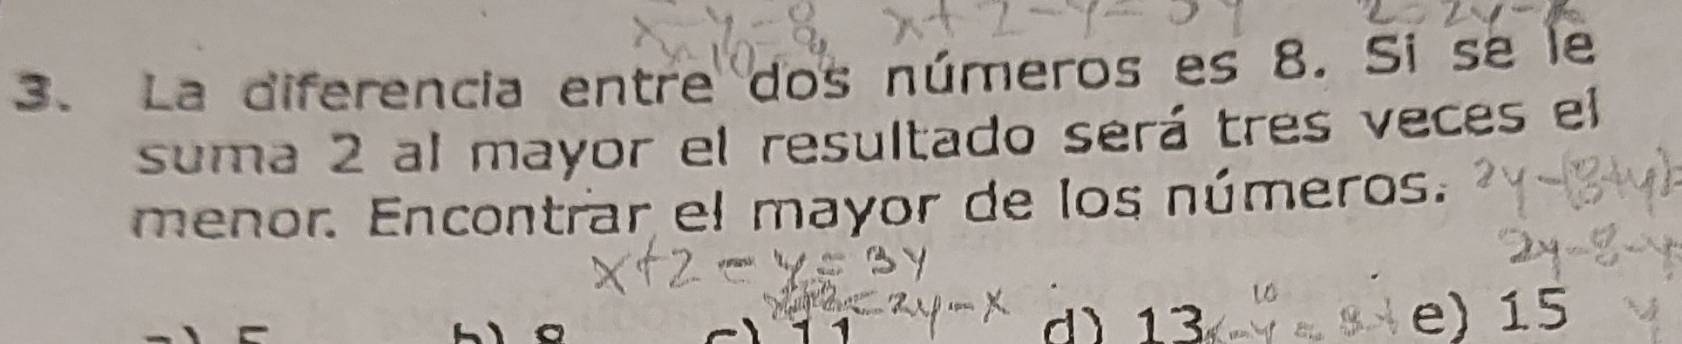 x-y=8 x+2-y=3y
3. La diferencia entre dos números es 8. Si se le
suma 2 al mayor el resultado será tres veces el
menor. Encontrar el mayor de los números. 2y-(8+y)=
x+2-y=3y 2y-8-y
2y-x
c) 11 d) 13 e) 15